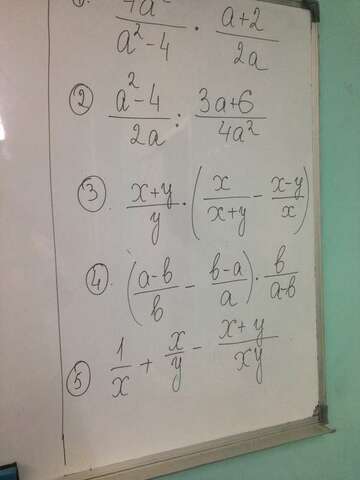 4a / (a² - 4) · (a + 2) / 2a
② (a² - 4) / 2a : (3a + 6) / 4a²
③. (x + y) / y · (x / (x + y) - (x - y) / x)
④. ((a - b) / b - (b - a) / a) · b / (a - b)
⑤ 1 / x + x / y - (x + y) / xy